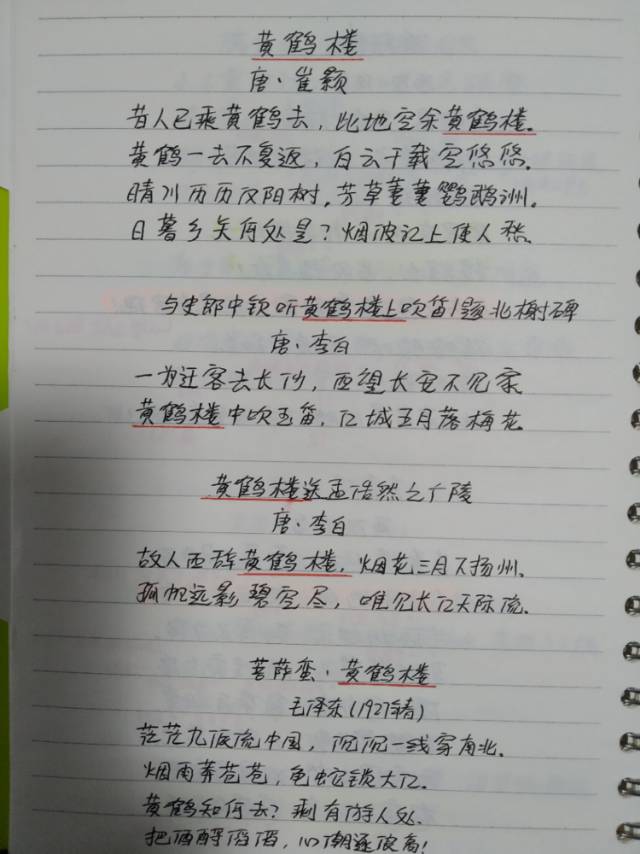 黄鹤楼
唐·崔颢
昔人已乘黄鹤去，此地空余黄鹤楼。
黄鹤一去不复返，白云千载空悠悠。
晴川历历汉阳树，芳草萋萋鹦鹉洲。
日暮乡关何处是？烟波江上使人愁。
与史郎中钦听黄鹤楼上吹笛\题北榭碑
唐·李白
一为迁客去长沙，西望长安不见家
黄鹤楼中吹玉笛，江城五月落梅花
黄鹤楼送孟浩然之广陵
唐·李白
故人西辞黄鹤楼，烟花三月下扬州。
孤帆远影碧空尽，唯见长江天际流。
菩萨蛮·黄鹤楼
毛泽东(1927年春)
茫茫九派流中国，沉沉一线穿南北。
烟雨莽苍苍，龟蛇锁大江。
黄鹤知何去？剩有游人处。
把酒酹滔滔，心潮逐浪高！